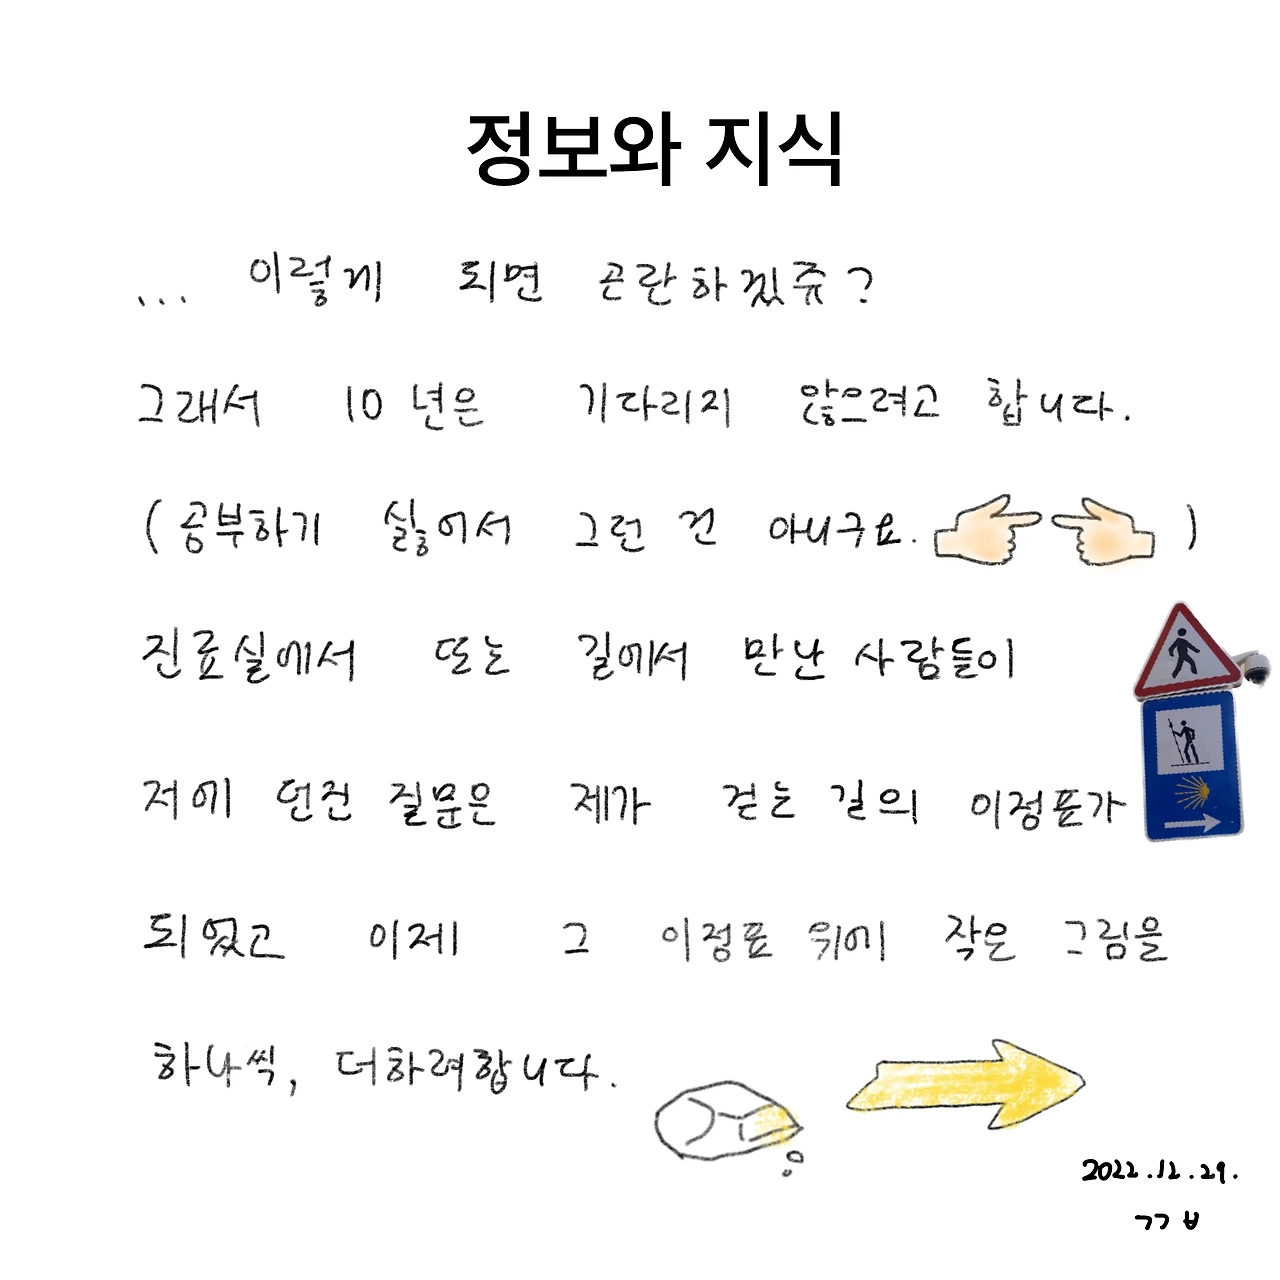 정보와 지식
... 이렇게 되면 곤란하겠쥬?
그래서 10년은 기다리지 않으려고 합니다.
(공부하기 싫어서 그런 건 아니구요. )
진료실에서 또는 길에서 만난 사람들이
저에 던진 질문은 제가 걷는 길의 이정표가
되었고 이제 그 이정표 위에 작은 그림을
하나씩, 더하려합니다.
2022.12.29.
ㄱㄱㅂ